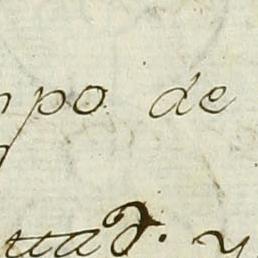 mpo de
ttad. y